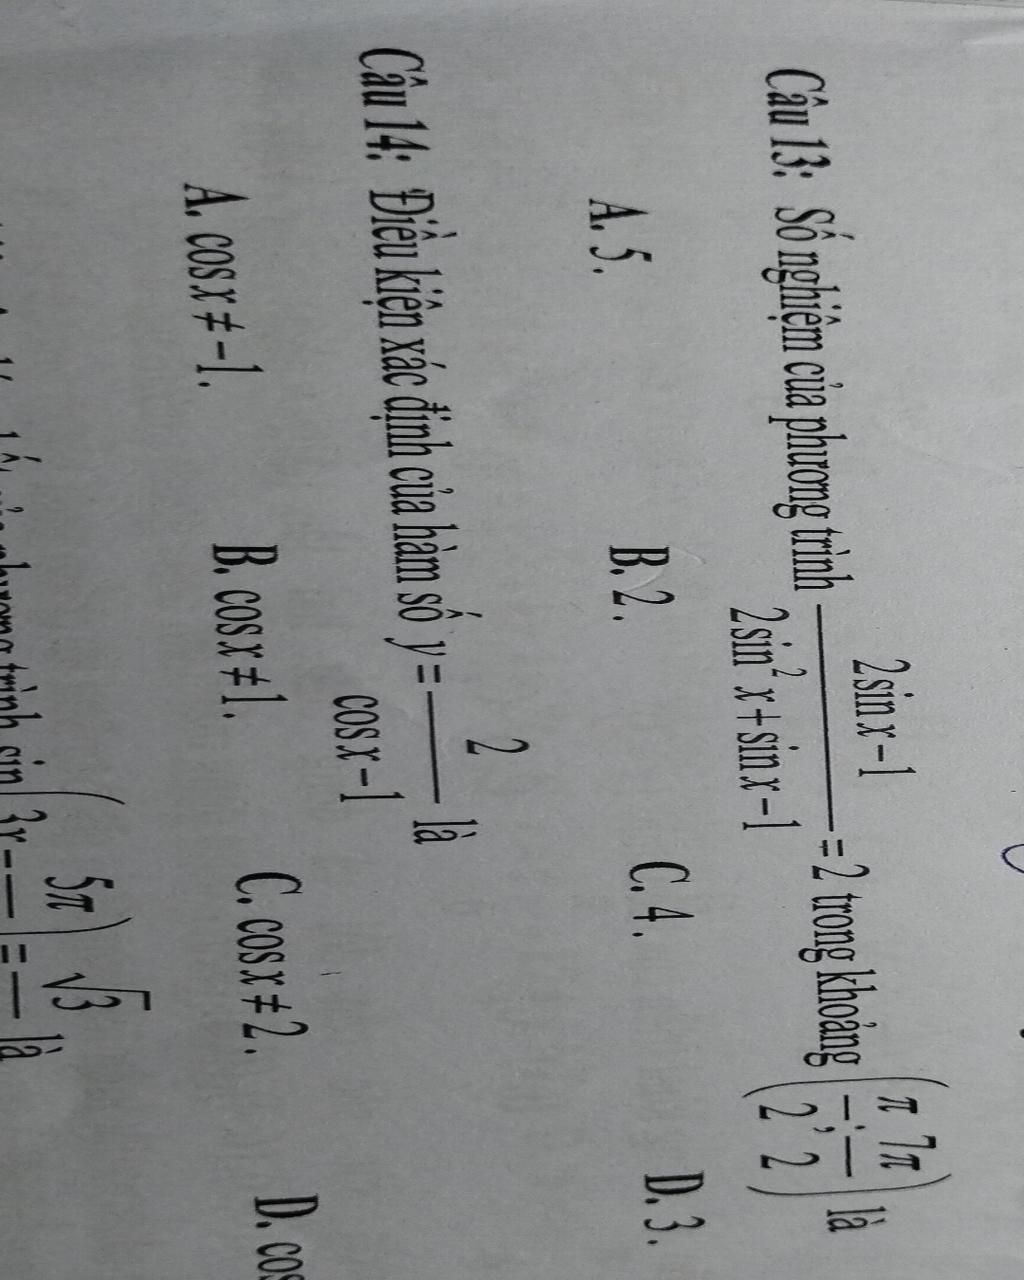 Câu 13: Số nghiệm của phương trình (2 sin x − 1)/(2 sin² x + sin x − 1) = 2 trong khoảng (π/2; 7π/2) là
A. 5. B. 2. C. 4. D. 3.
Câu 14: Điều kiện xác định của hàm số y = 2/(cos x − 1) là
A. cos x ≠ −1. B. cos x ≠ 1. C. cos x ≠ 2. D. cos
phương trình sin(3x − 5π/ ) = √3/ là